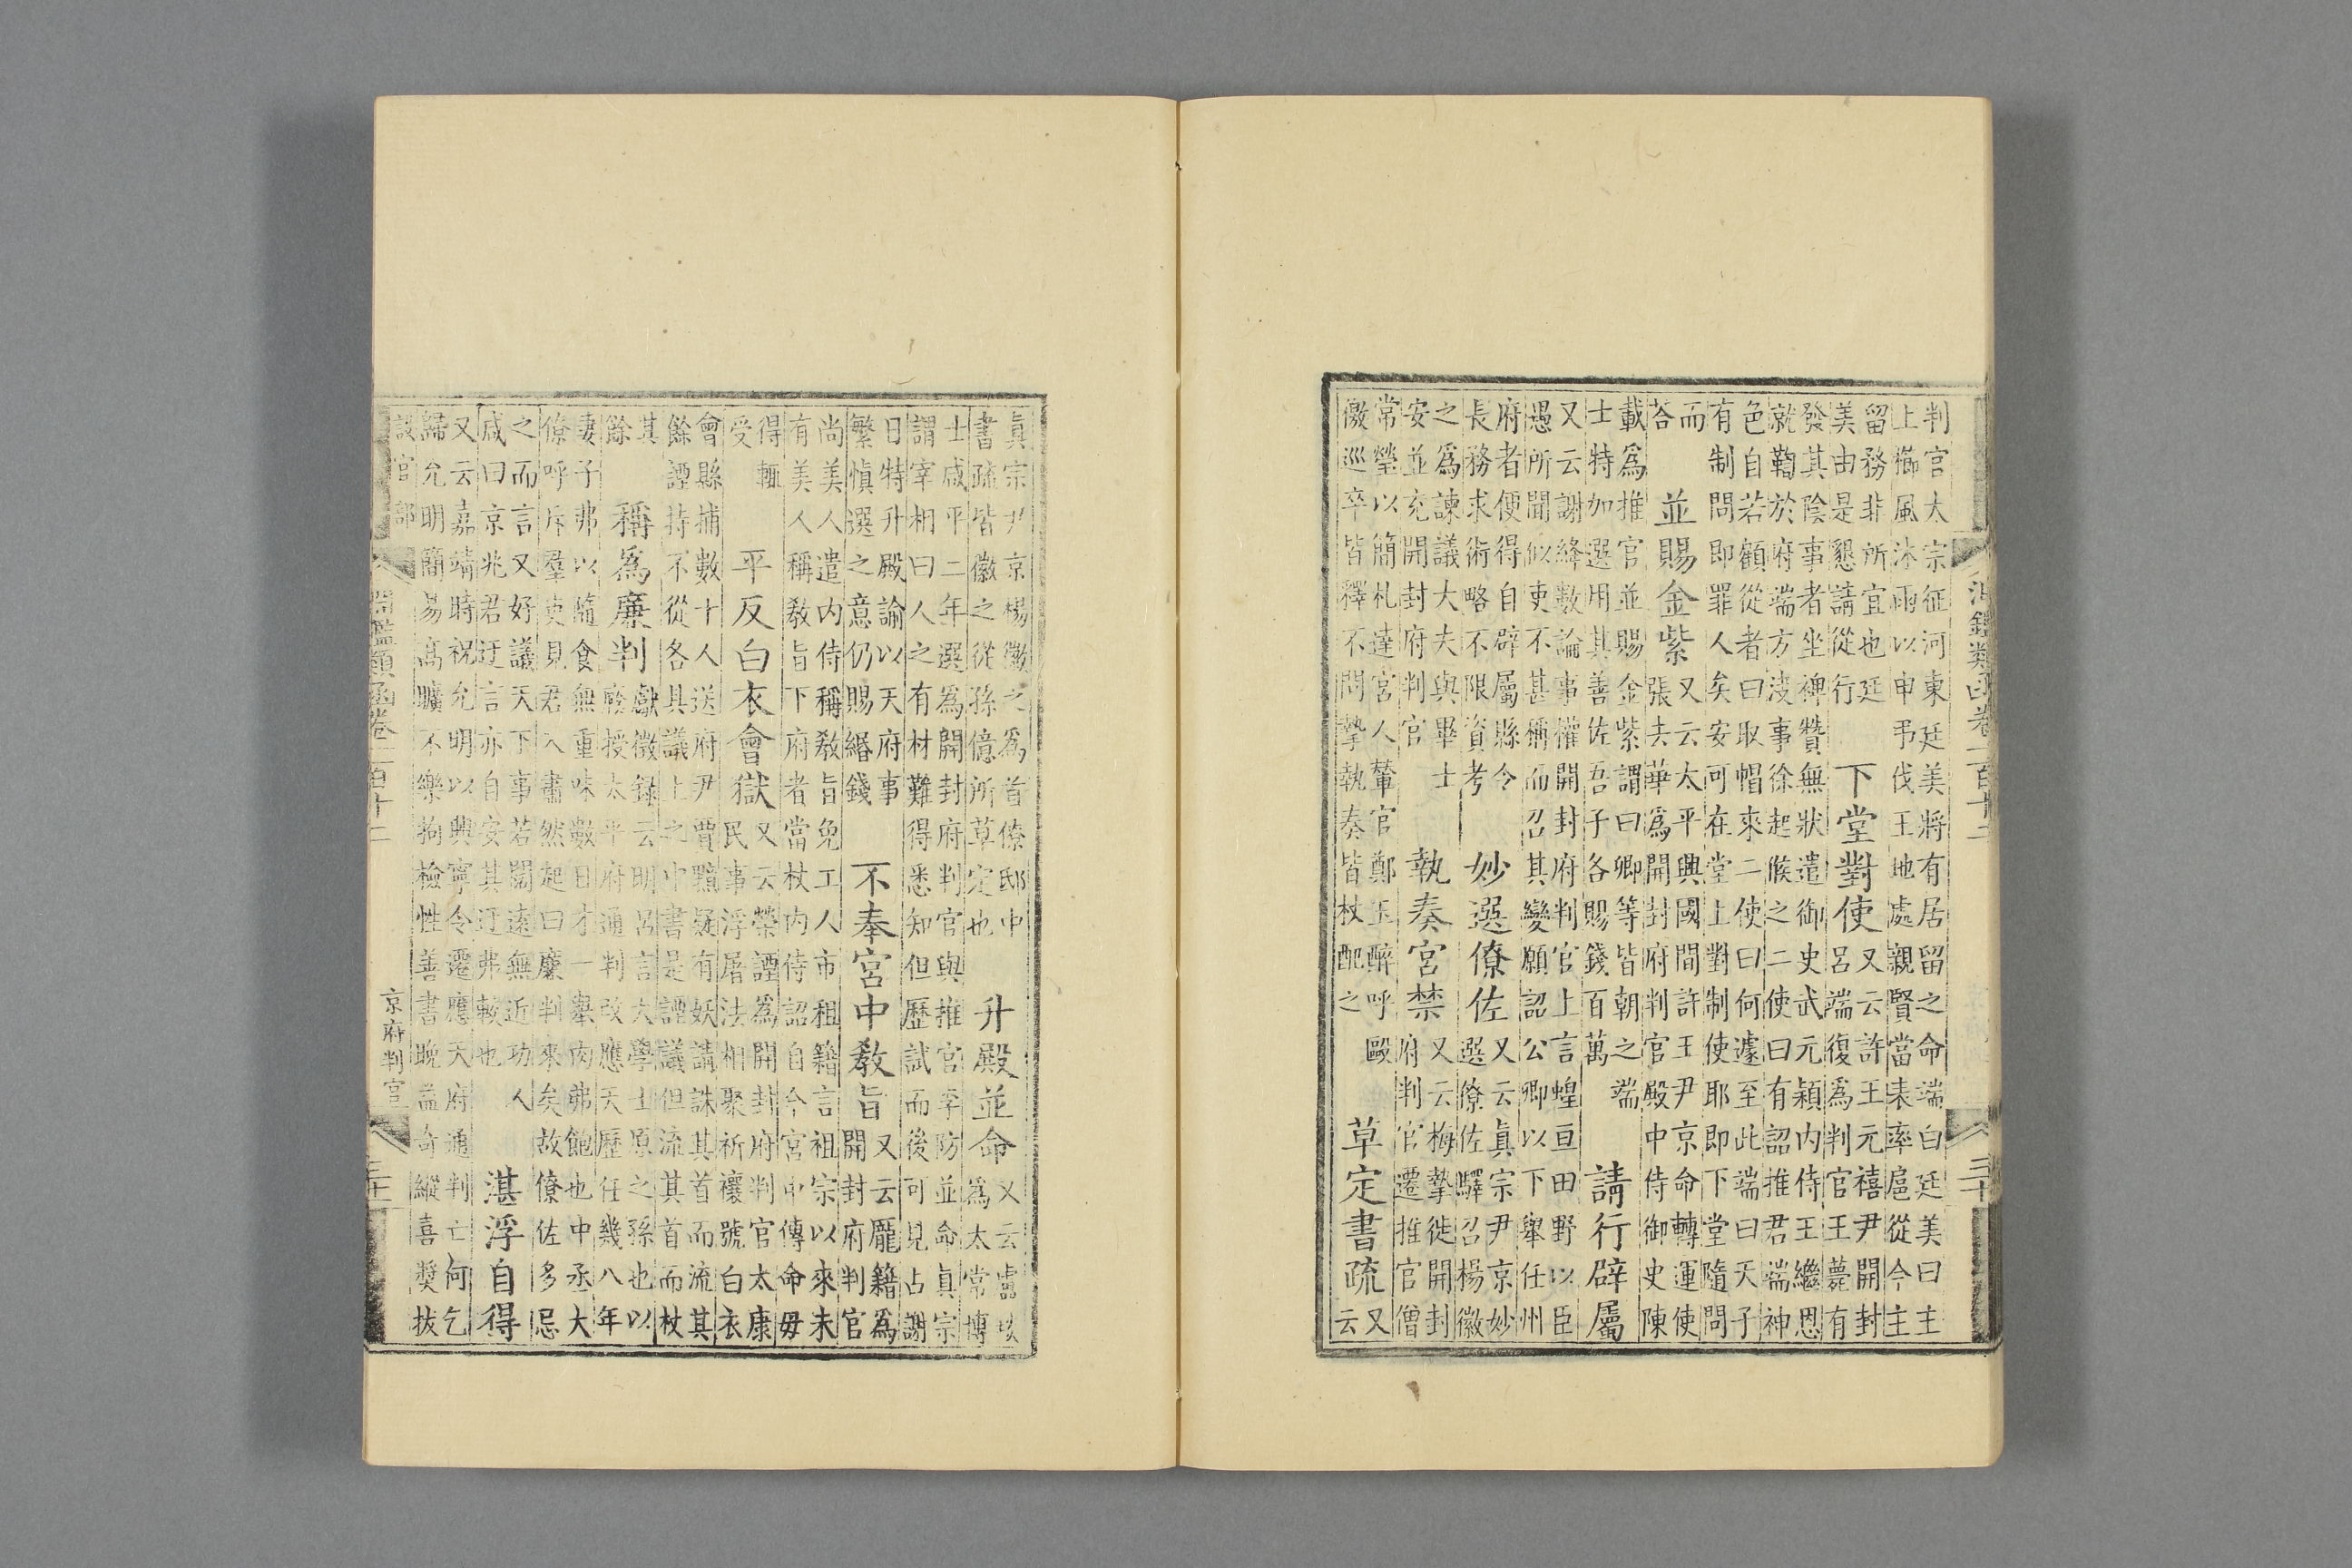 判官太宗征河東廷美將有居留之命端白廷美曰主
上櫛風沐雨以申弔伐王地處親賢當表率扈從今主
留務非所宜也廷
美由是懇請從行
下堂對使
又云許王元禧尹開封
呂端復爲判官王薨有
發其陰事者坐裨贊無狀遣御史武元穎内侍王繼恩
就鞫於府端方決事徐起候之二使曰有詔推君端神
色自若顧從者曰取帽來二使曰何遽至此端曰天子
有制問即罪人矣安可在堂上對制使耶即下堂隨問
而
答
並賜金紫
又云太平興國間許王尹京命轉運使
張去華爲開封府判官殿中侍御史陳
載爲推官並賜金紫謂曰卿等皆朝之端
士特加選用其善佐吾子各賜錢百萬
請行辟屬
又云謝絳數論事權開封府判官上言蝗亘田野以臣
愚所聞似吏不甚稱而召其變願詔公卿以下舉任州
府者便得自辟屬縣令
長務求術略不限資考
妙選僚佐
又云真宗尹京妙
選僚佐驛召楊徽
之爲諫議大夫與畢士
安並充開封府判官
執奏宮禁
又云梅摯徙開封
府判官遷推官僧
常瑩以簡札達宮人輦官鄭玉醉呼毆
徼巡卒皆釋不問摯執奏皆杖配之
草定書疏
又
云
真宗尹京楊徽之爲首僚邸中
書疏皆徽之從孫億所草定也
升殿並命
又云盧琰
爲太常博
士咸平二年選爲開封府判官與推官李防並命真宗
謂宰相曰人之有材難得悉知但歷試而後可見占謝
日特升殿諭以天府事
繁愼選之意仍賜緡錢
不奉宮中教旨
又云龐籍爲
開封府判官
尚美人遣内侍稱教旨免工人市租籍言祖宗以來未
有美人稱教旨下府者當杖内侍詔自今宮中傳命毋
得輒
受
平反白衣會獄
又云榮諲爲開封府判官太康
民事浮屠法相聚祈禳號白衣
會縣捕數十人送府尹賈黯疑有妖請誅其首而流其
餘諲持不從各具議上之中書是諲議但流其首而杖
其
餘
稱爲廉判
獻徵録云明呂言大學士原之孫也以
廕授太平府通判改應天歷任幾八年
妻子弗以隨食無重味數日才一舉肉弗飽也中丞大
僚呼斥羣吏見君入肅然起曰廉判來矣故僚佐多忌
之而言又好議天下事若闊遠無近功人
咸曰京兆君迂言亦自安其迂弗較也
湛浮自得
又云嘉靖時祝允明以興寧令遷應天府通判亡何乞
歸允明簡易高曠不樂拘檢性善書晚益奇縱喜奬拔
設官部
淵鑑類函卷一百十二
京府判官